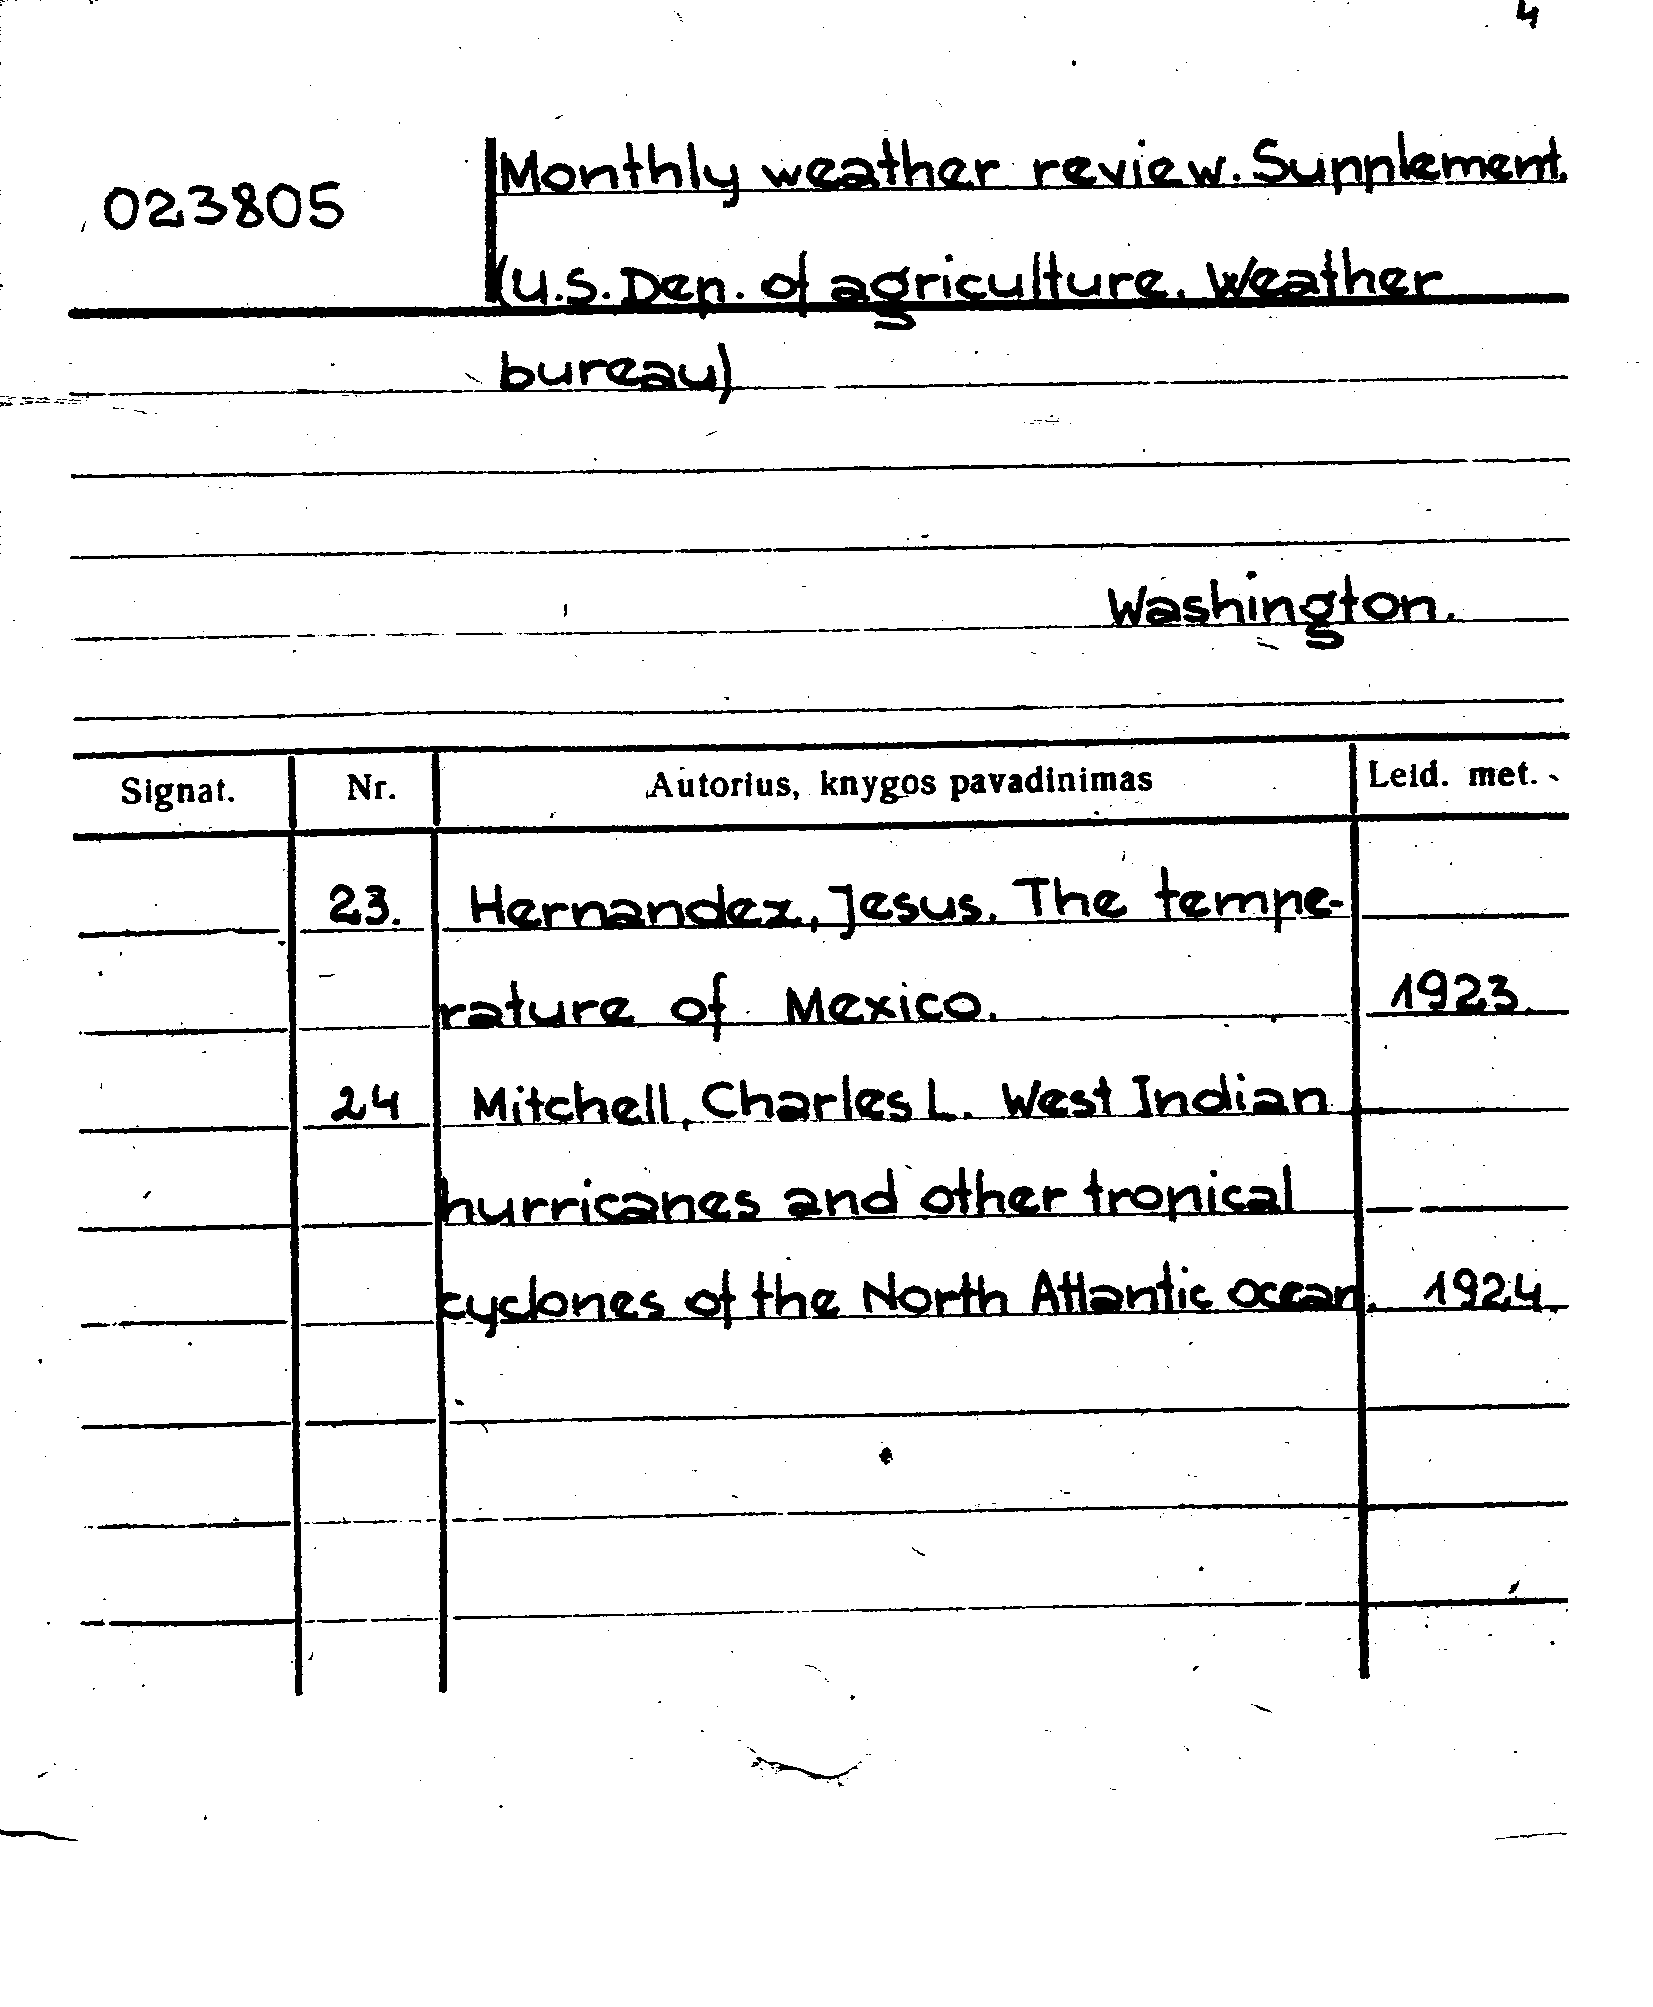 4
Monthly weather review. Supplement.
023805
(U.S. Dep. of agriculture. Weather
bureau)
Washington.
Signat. Nr. Autorius, knygos pavadinimas Leid. met.
23. Hernandez, Jesus. The tempe-
rature of Mexico. 1923.
24 Mitchell, Charles L. West Indian
hurricanes and other tropical
cyclones of the North Atlantic ocean. 1924.